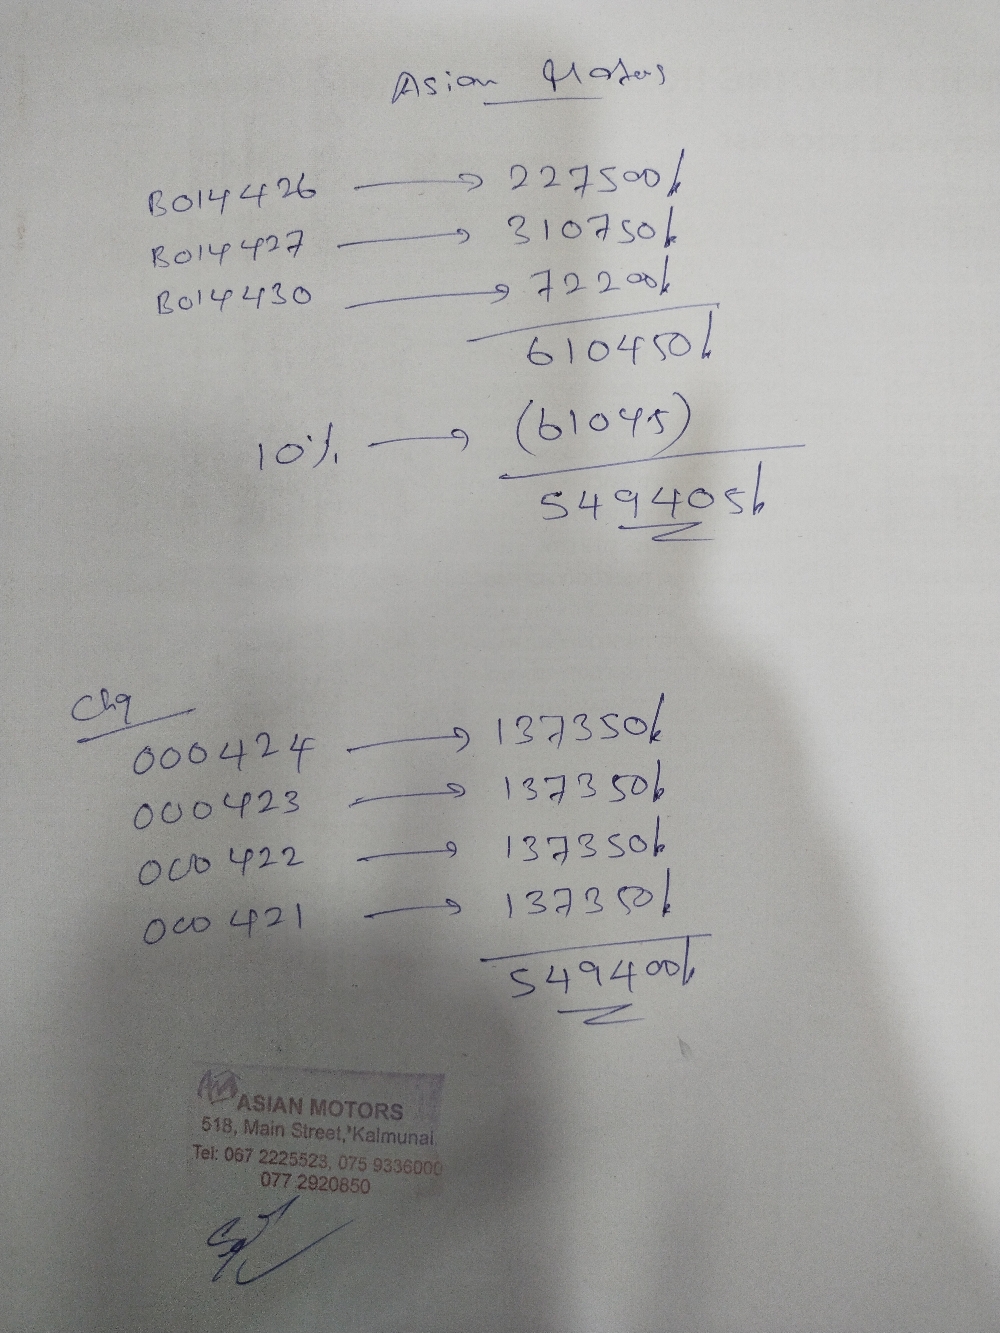 Asian Motors
B014426 → 227500/-
B014427 → 310750/-
B014430 → 72200/-
610450/-
10% → (61045)
549405/-
Chq
000424 → 137350/-
000423 → 137350/-
000422 → 137350/-
000421 → 137350/-
549400/-
ASIAN MOTORS
518, Main Street, Kalmunai
Tel: 067 2225523, 075 9336000
077 2920850